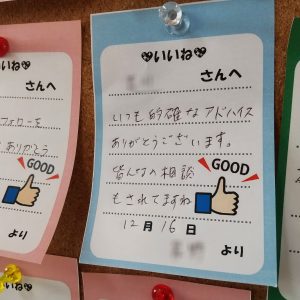 ♥いいね♥
さんへ
いつも的確なアドバイス
ありがとうございます。
皆んなの相談
もされてますね
GOOD
12月16日
より
いいね♥
さんへ
フォローを
ありがとう
GOOD
より